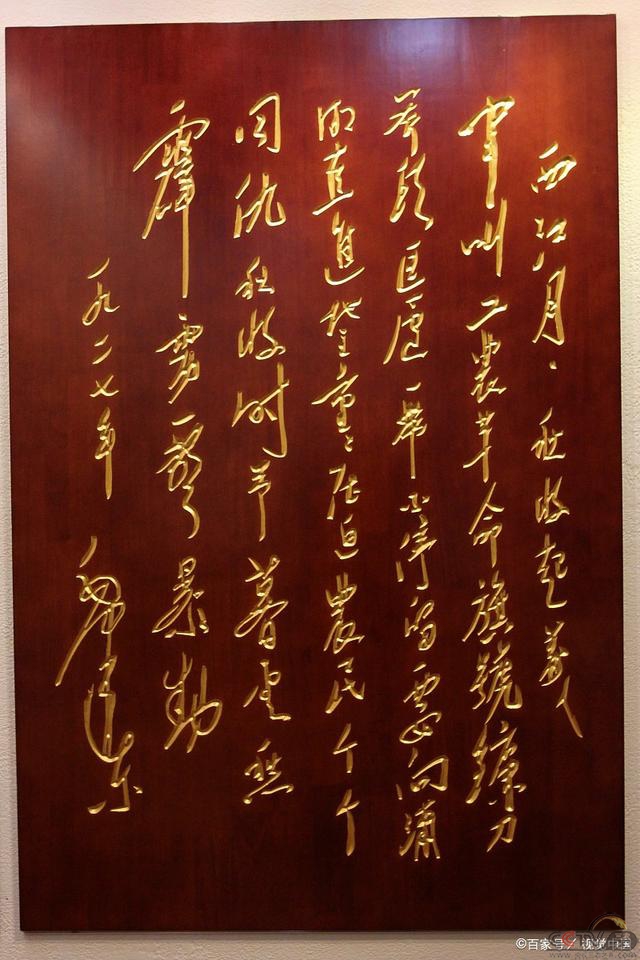 西江月·秋收起义
軍叫工農革命旗號鐮刀
斧頭匡廬一帶不停留要向瀟
湘直進地主重々压迫農民个个
同仇秋收时节暮雲愁
霹靂一聲暴動
一九二七年 毛泽东
©百家号／视觉中国